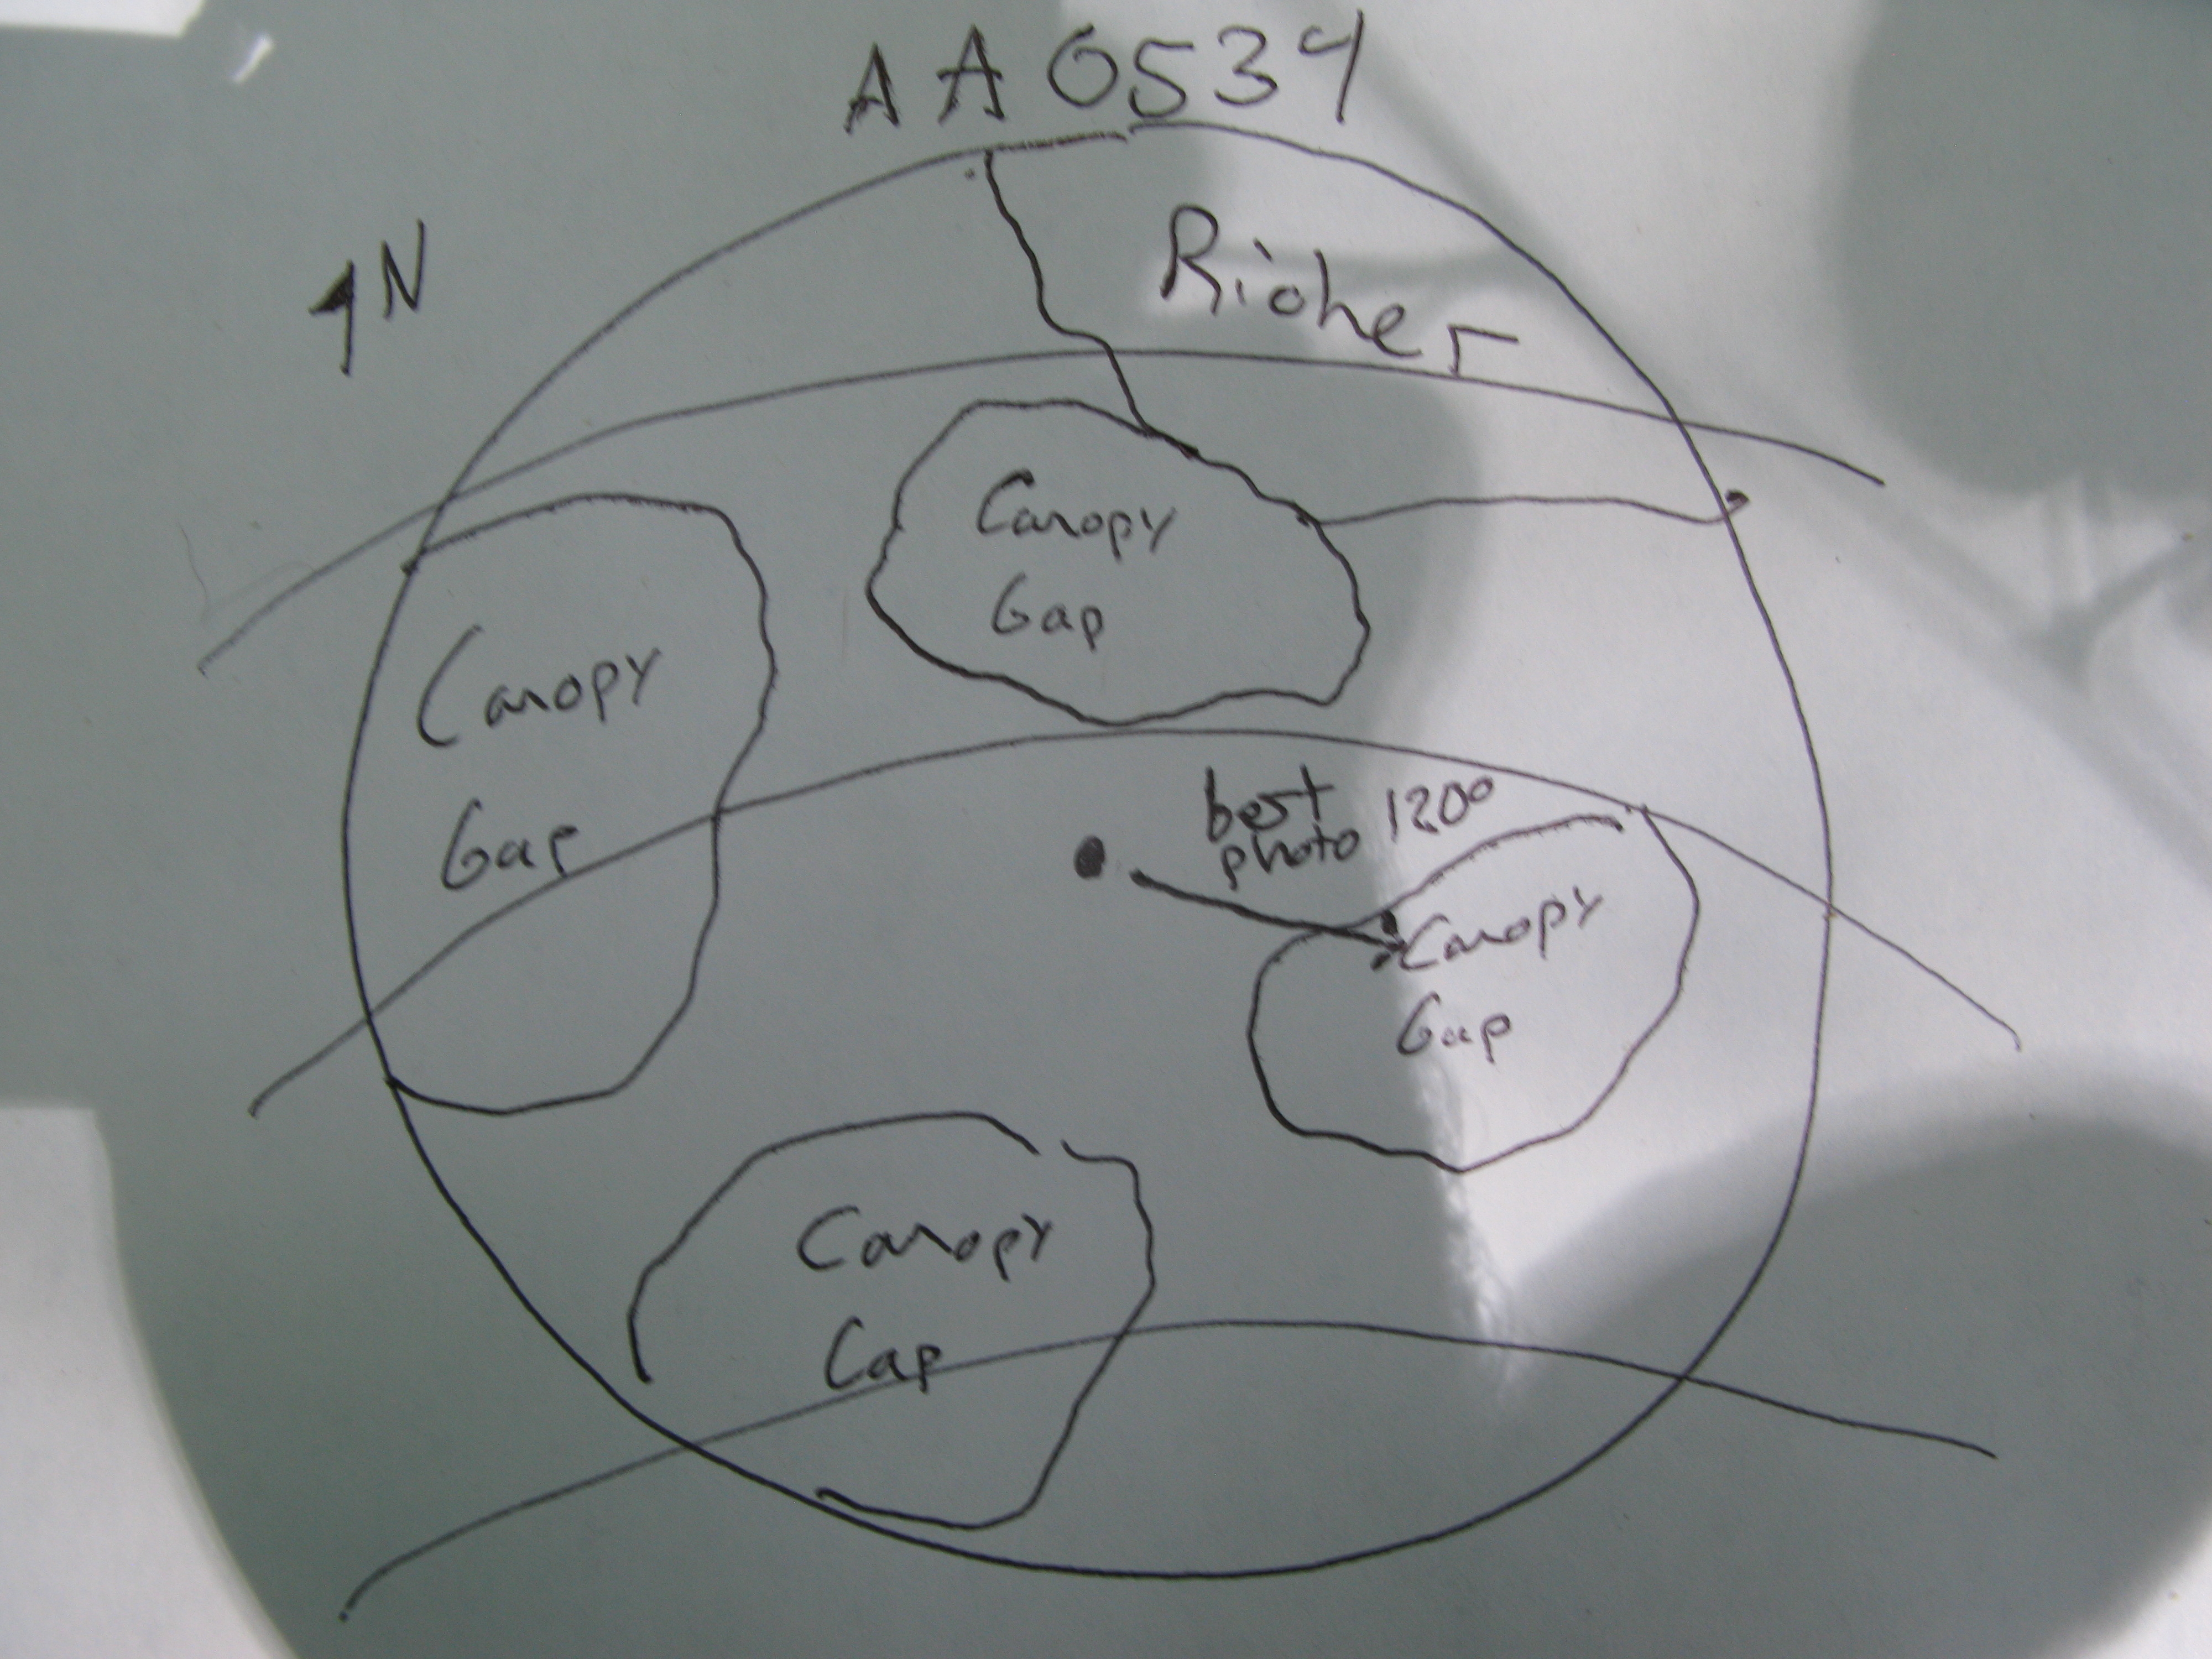 AA0534
N
Richer
Canopy
Gap
Canopy
Gap
best 120°
photo
Canopy
Gap
Canopy
Cap